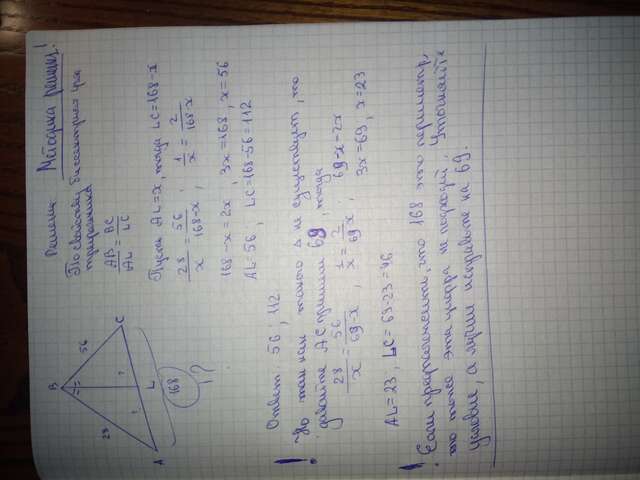 Решение Методика решения!
По свойству биссектрисы угла
треугольника
AB/AL = BC/LC
Пусть AL=x, тогда LC=168-x
28/x = 56/168-x, 1/x = 2/168-x
168-x=2x, 3x=168, x=56
AL=56, LC=168-56=112
B
28
56
A
L
C
?
?
168
!?
Ответ. 56; 112
! Но так как такого Δ не существует, то
давайте AC примем 69, тогда
28/x = 56/69-x, 1/x = 2/69-x, 69-x=2x
3x=69, x=23
AL=23; LC=69-23=46
! Если предположить, что 168 это периметр,
то тоже эта цифра не подходит. Уточняйте
условие, а лучше исправьте на 69.